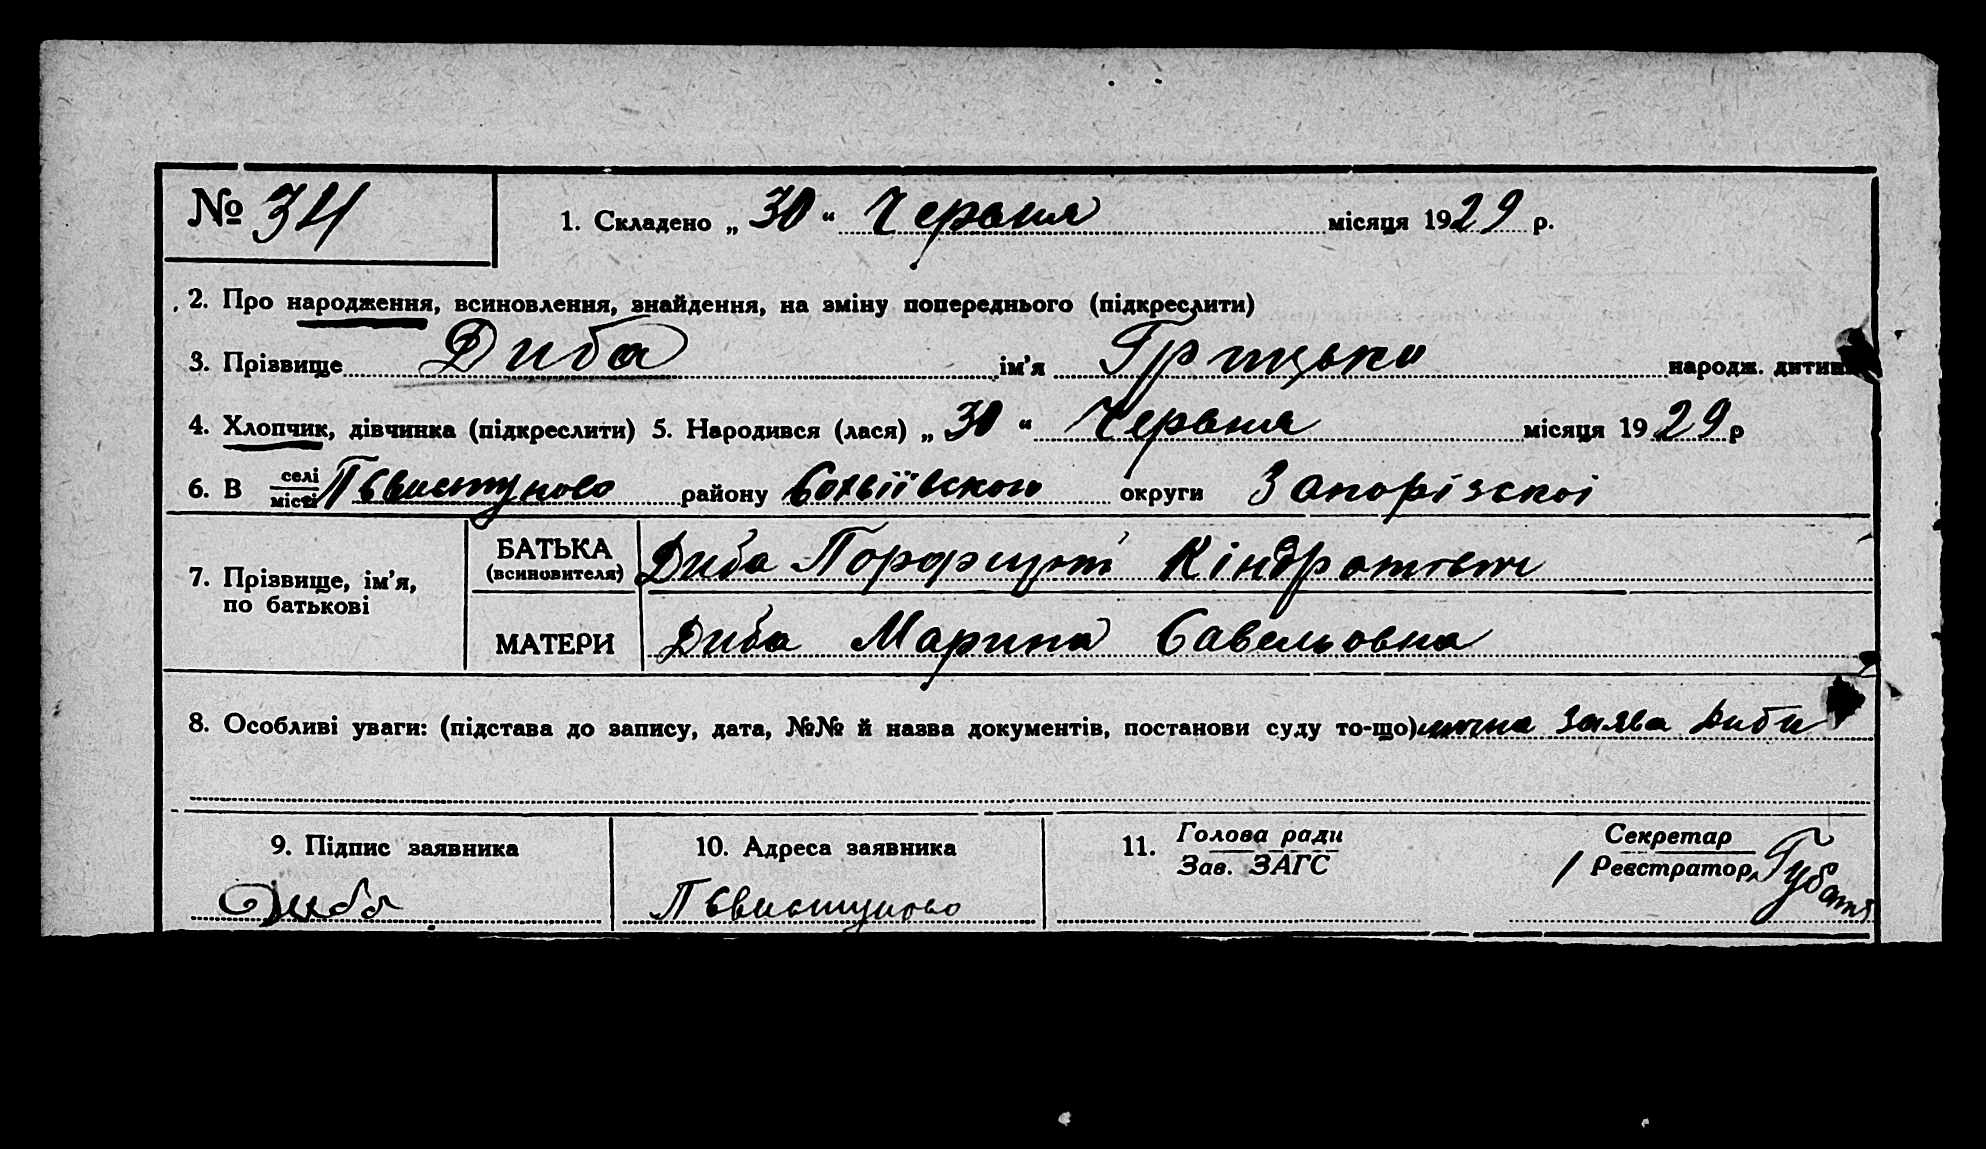 № 34
1. Складено „ 30 “ Червня місяця 1929 р.
2. Про народження, всиновлення, знайдення, на зміну попереднього (підкреслити)
3. Прізвище Диба ім’я Грицько народж. дитини
4. Хлопчик, дівчинка (підкреслити) 5. Народився (лася) „ 30 “ Червня місяця 1929 р
6. В селі місті району округи Запорізскоі
7. Прізвище, ім’я, по батькові
БАТЬКА (всиновителя) Диба Кіндратович
МАТЕРИ Диба Марина Савельовна
8. Особливі уваги: (підстава до запису, дата, №№ й назва документів, постанови суду то-що) заява Диби
9. Підпис заявника
10. Адреса заявника
11. Голова ради Зав. ЗАГС
Секретар Реєстратор
Диба